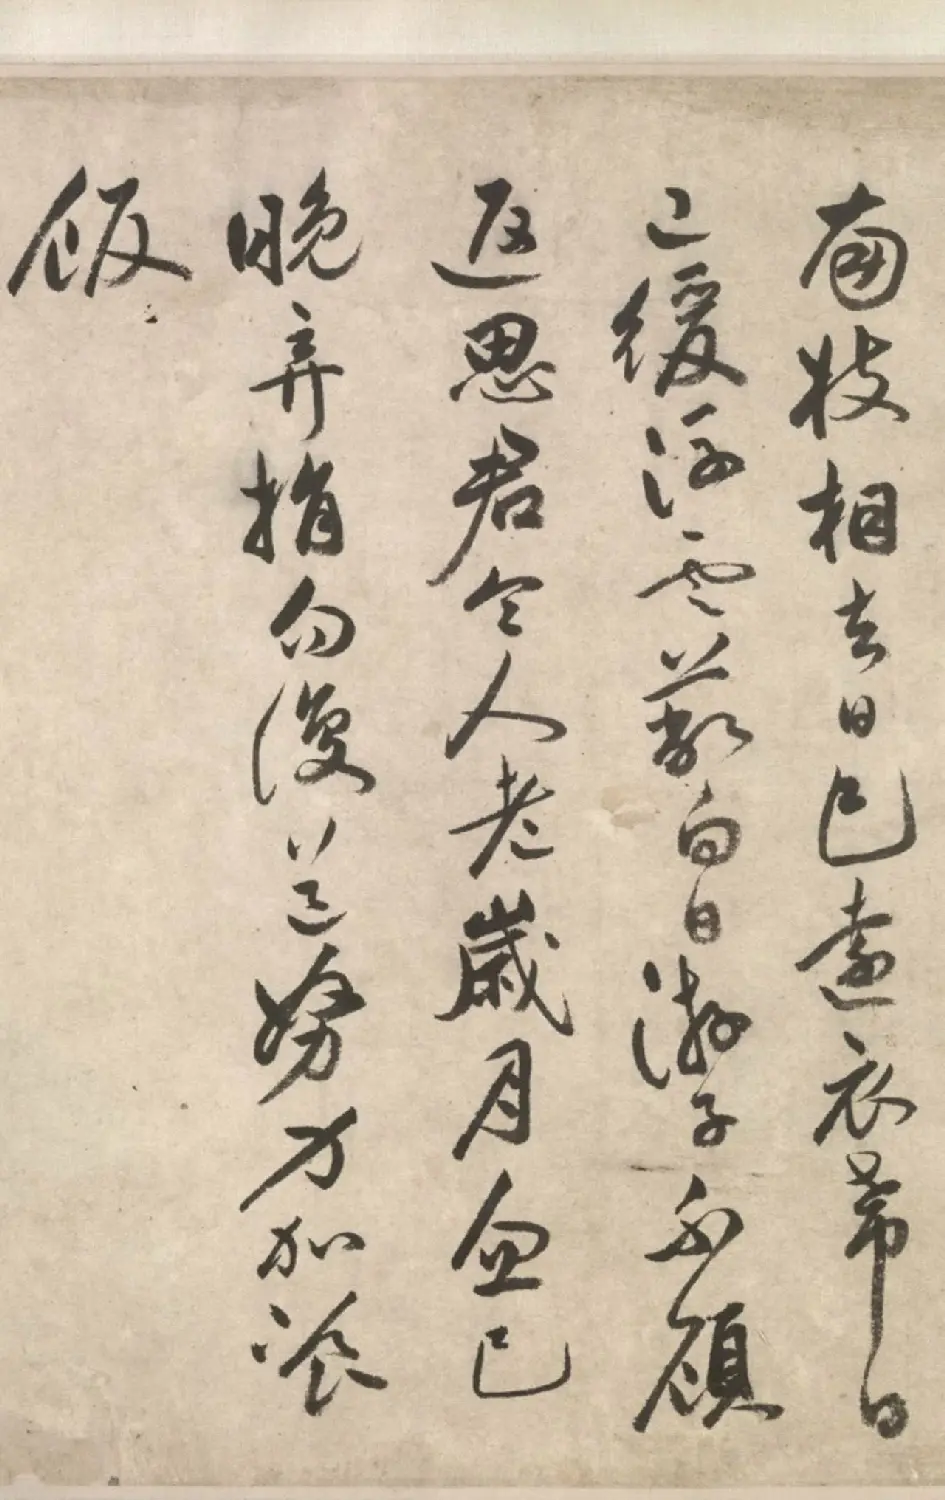 南枝相去日已遠衣帶日
已緩浮雲蔽白日遊子不顧
返思君令人老歲月忽已
晚弃捐勿復道努力加湌
飯